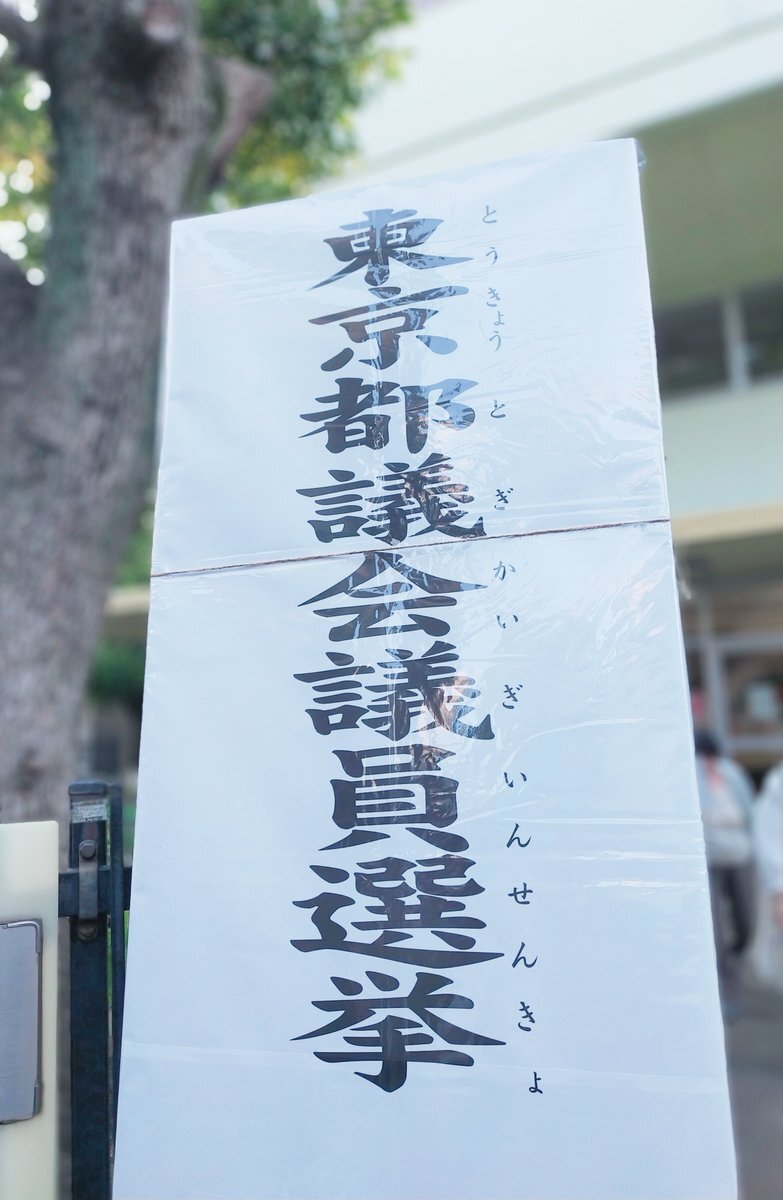 東京都議会議員選挙
とうきょうとぎかいぎいんせんきょ